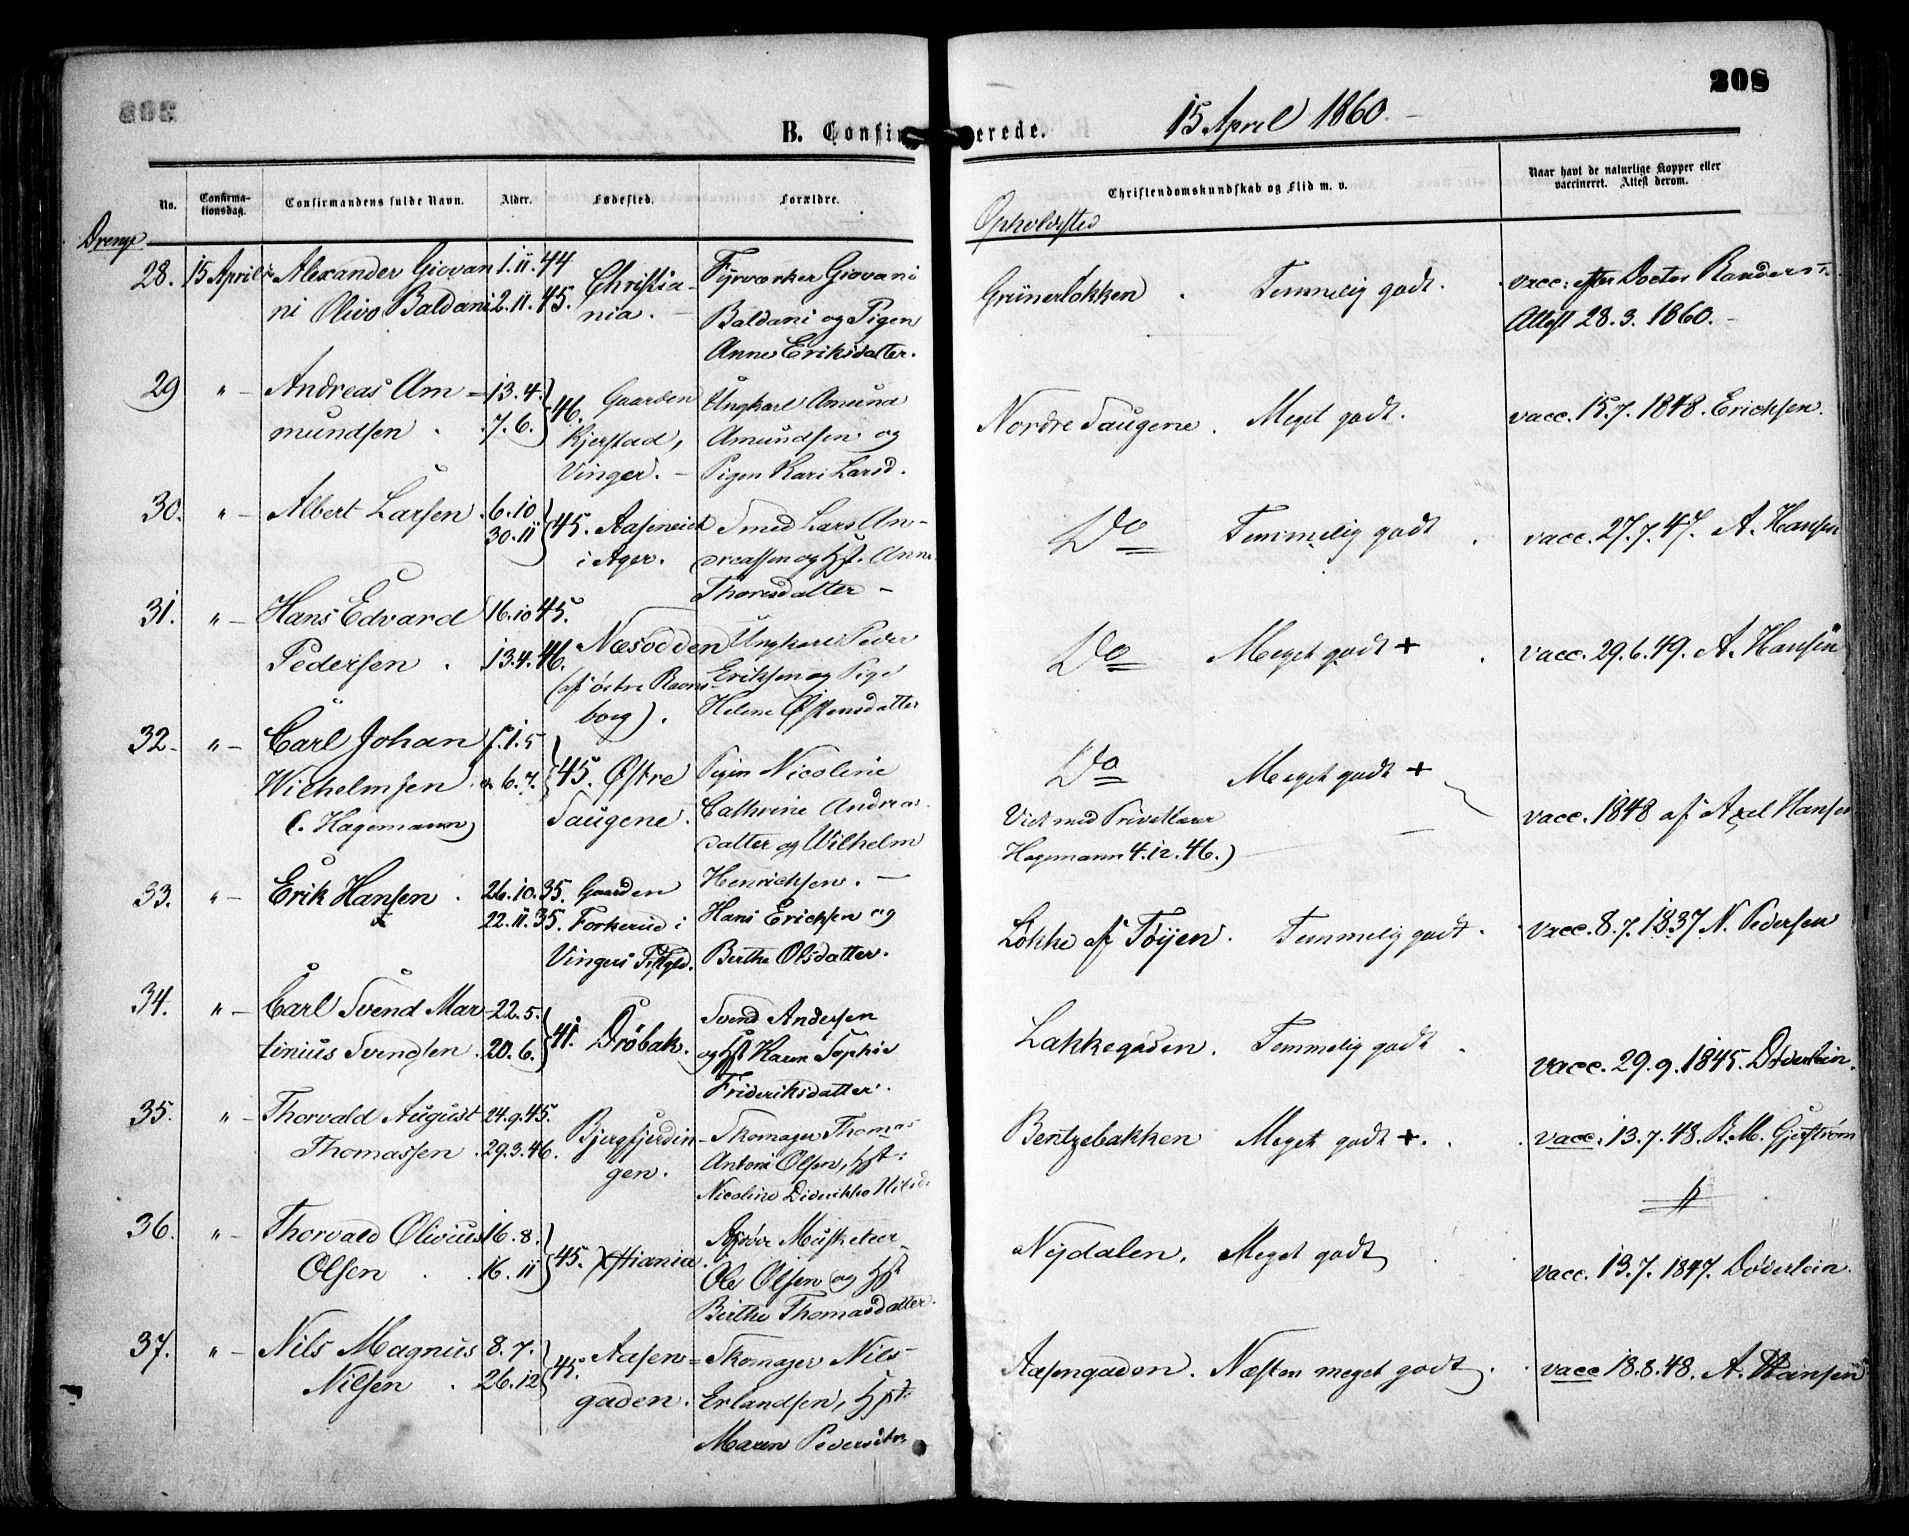 208
B. Confirmerede.
15 April 1860.
No.
Confirma-
tionsdag.
Confirmandens fulde Navn.
Alder.
Fødested.
Forældre.
Christendomskundskab og Flid m. v.
Naar havt de naturlige Kopper eller
vaccineret. Attest derom.
Drenge
Opholdsted
28. 15 April Alexander Giovan 1.11.44 Christia- Fyrværker Giovani
ni Olivo Baldani 2.11.45. nia. Baldani og Pigen
Anne Eriksdatter.
Grünerløkken . Temmelig godt. vacc: efter Doctor Randers
Attest 28.3.1860.
29 " Andreas Am- 13.4. 46. Gaarden Ungkarl Amund
mundsen . 7.6. Kjerstad, Amundsen og
Vinger. Pigen Kari Larsd.
Nordre Saugene. Meget godt. vacc. 15.7.1848. Erichsen.
30. " Albert Larsen 6.10 45. Aaseneiet Smed Lars An-
30.11 i Ager. dreassen og Hst. Anne
Thoresdatter
Do Temmelig godt . vacc. 27.7.47. A. Hansen
31. " Hans Edvard 16.10 45. Næsodden Ungkarl Peder
Pedersen . 13.4.46. (af østre Ravns- Eriksen og Pige
borg). Helene Østensdatter
Do Meget godt + . vacc. 29.6.49. A. Hansen
32. " Carl Johan f. 1.5 45. Østre Pigen Nicoline
Wilhelmsen 6.7. Saugene. Cathrine Andrea
(C. Hagemann) datter og Wilhelm
Henrichsen.
Do Meget godt +
Viet med Privatlærer
Hagemann 4.12.46.)
vacc. 1848 af Axel Hansen
33. " Erik Hansen . 26.10.35. Gaarden Hans Erichsen og
x 22.11.35. Forkerud i Berthe Olsdatter.
Vingers Pstgld.
Løkke af Tøyen. Temmelig godt . vacc. 8.7.1837 N. Pedersen
34. " Carl Svend Mar- 22.5. 41. Drøbak. Svend Andersen
tinius Svendsen . 20.6. og Hst Karen Sophie
Frideriksdatter.
Lakkegaden. Temmelig godt . vacc. 29.9.1845. Døderlein.
35. " Thorvald August 24.9.45. Bjergfjerdin- Skomager Thomas
Thomassen . 29.3.46. gen. Antoni Olsen, Hst:
Nicoline Diderikke
Bentzebakken Meget godt +. . vacc. 13.7.48. B.M. Gjøstrøm
36. " Thorvald Olivius 16.8. 45. Xstiania. Afdøde Musketeer
Olsen . 16.11 Ole Olsen og Hst
Berthe Thomasdatter.
Nydalen. Meget godt vacc. 13.7.1847. Døderlein.
37. " Nils Magnus 8.7. 45. Aasen- Skomager Nils
Nilsen . 26.12 gaden. Erlandsen, Hst:
Maren Pedersdtr.
Aasengaden. Næsten meget godt . vacc 18.8.48. A. Hansen